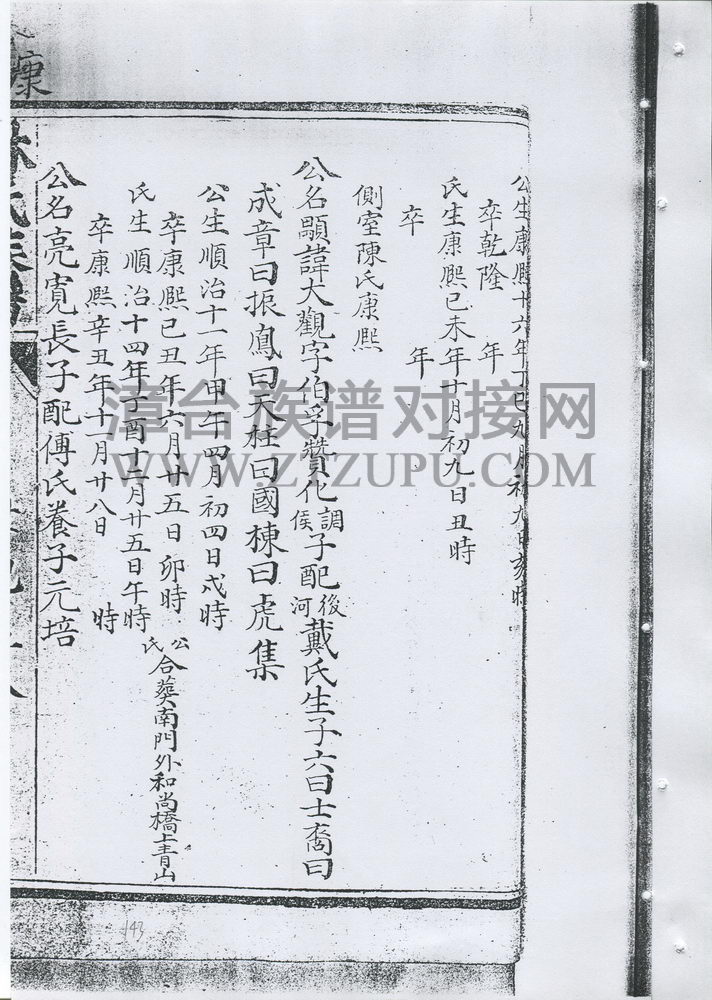 公生康熙十六年丁巳九月初九日亥時
卒乾隆 年
氏生康熙己未年十月初九日丑時
卒 年
側室陳氏康熙
公名顯諱大觀字伯孚贊化調侯子配後河戴氏生子六曰士裔曰
成章曰振鳳曰天柱曰國棟曰虎集
公生順治十一年甲午四月初四日戍時
卒康熙己丑年六月廿五日卯時
氏生順治十四年丁酉十二月廿五日午時
卒康熙辛丑年十一月廿八日 時
公氏合葬南門外和尚橋上青山
公名亮寬長子配傅氏養子元培
氏族譜
康
漳台族谱对接网
WWW.ZTZUPU.COM
143